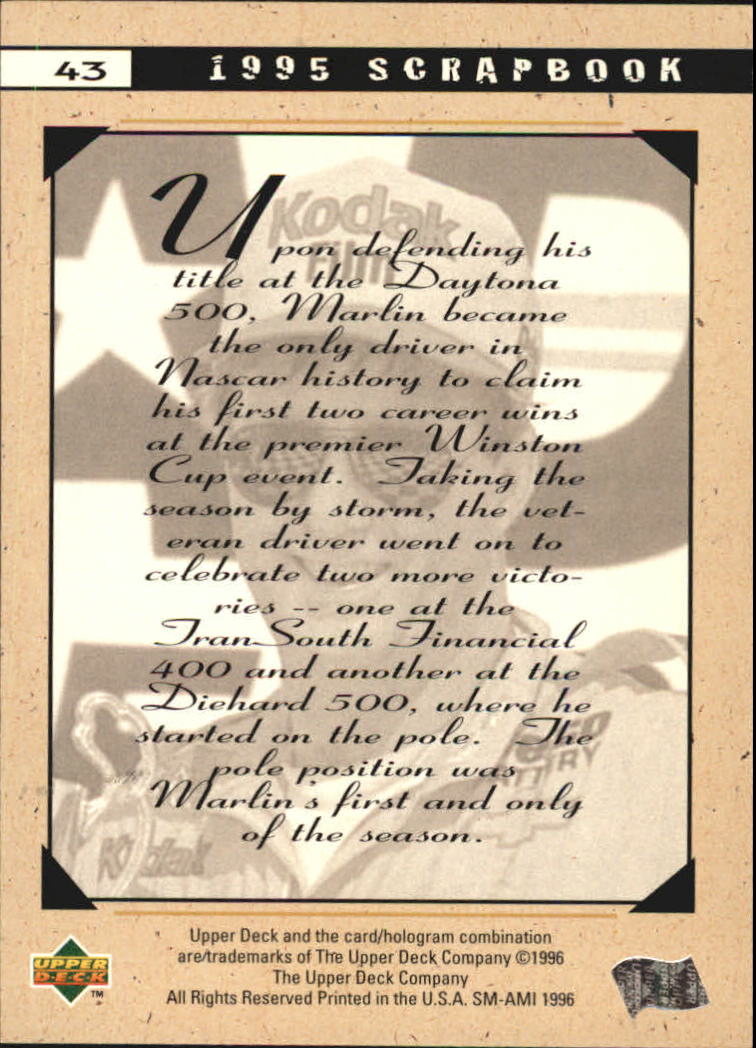 43 1995 SCRAPBOOK
Kodak
Film
Upon defending his
title at the Daytona
500, Marlin became
the only driver in
Nascar history to claim
his first two career wins
at the premier Winston
Cup event. Taking the
season by storm, the vet-
eran driver went on to
celebrate two more victo-
ries -- one at the
TranSouth Financial
400 and another at the
Diehard 500, where he
started on the pole. The
pole position was
Marlin's first and only
of the season.
Kodak
Upper Deck and the card/hologram combination
are trademarks of The Upper Deck Company ©1996
The Upper Deck Company
All Rights Reserved Printed in the U.S.A. SM-AMI 1996
UPPER
DECK
TM